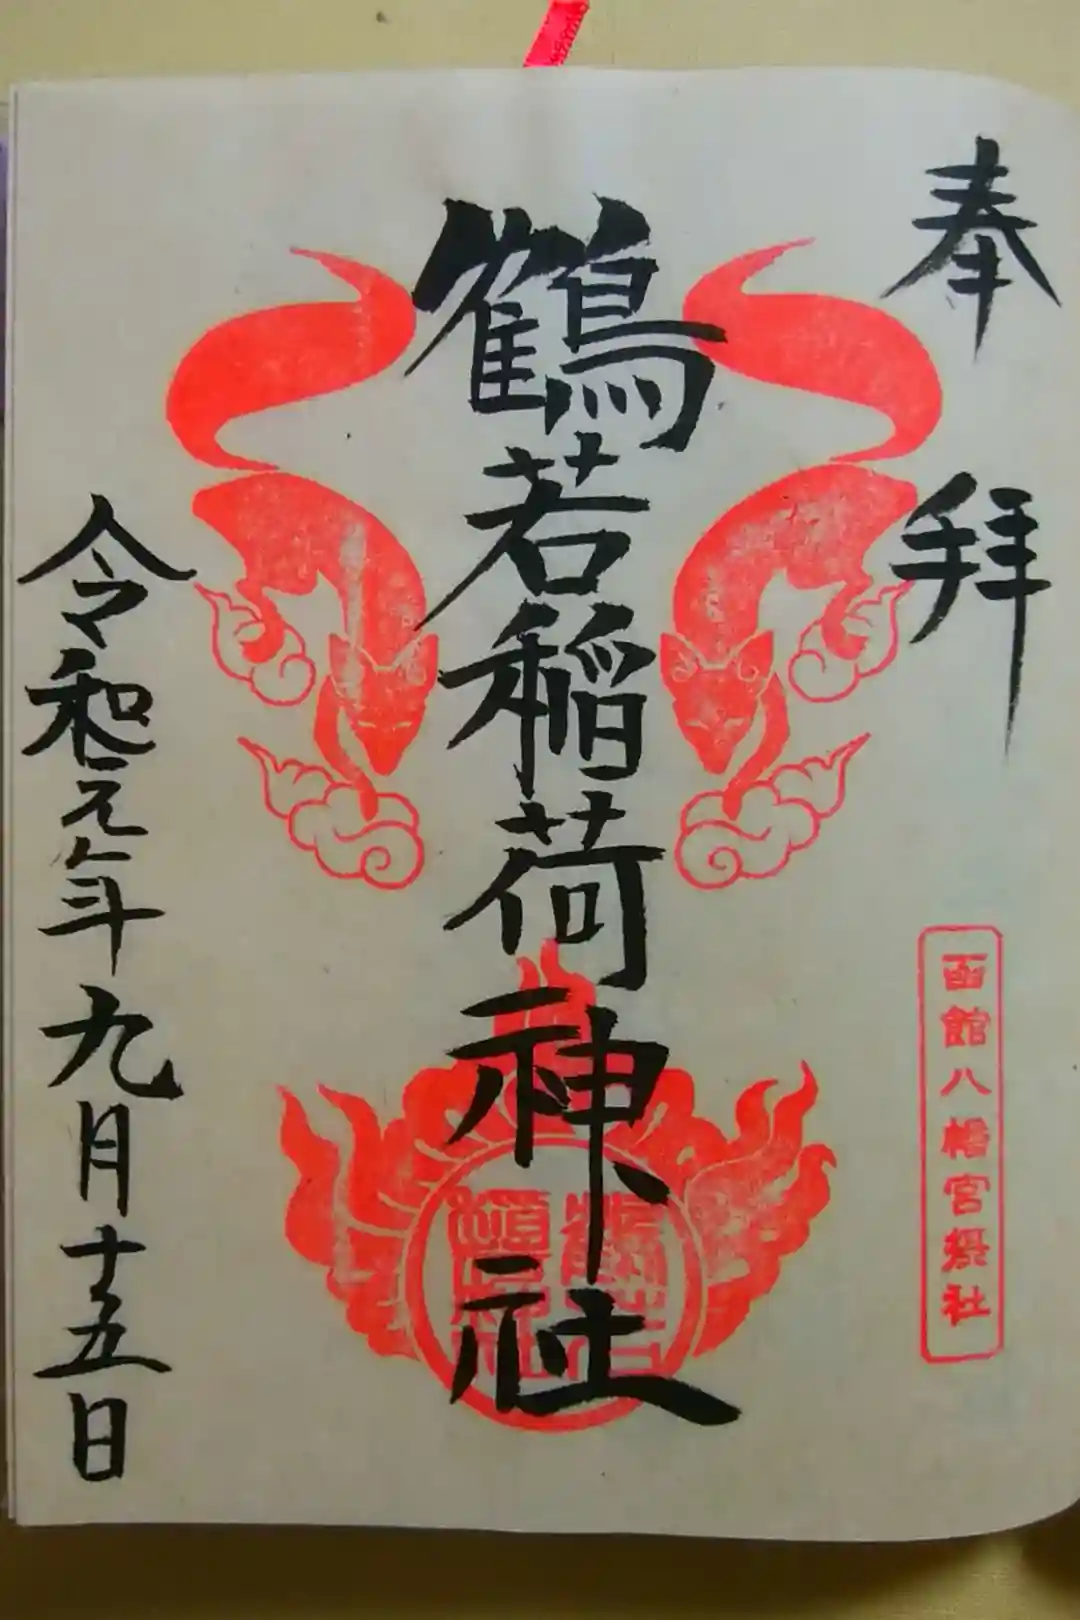 奉拝
函館八幡宮摂社
鶴若稲荷神社
令和元年九月十五日